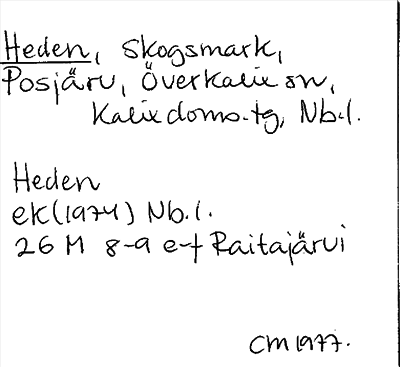 Heden, Skogsmark,
Posjärv, Överkalix sn,
Kalix doms.tg, Nb.l.
Heden
ek(1974) Nb.l.
26 M 8-9 e-f Raitajärvi
CM 1977.